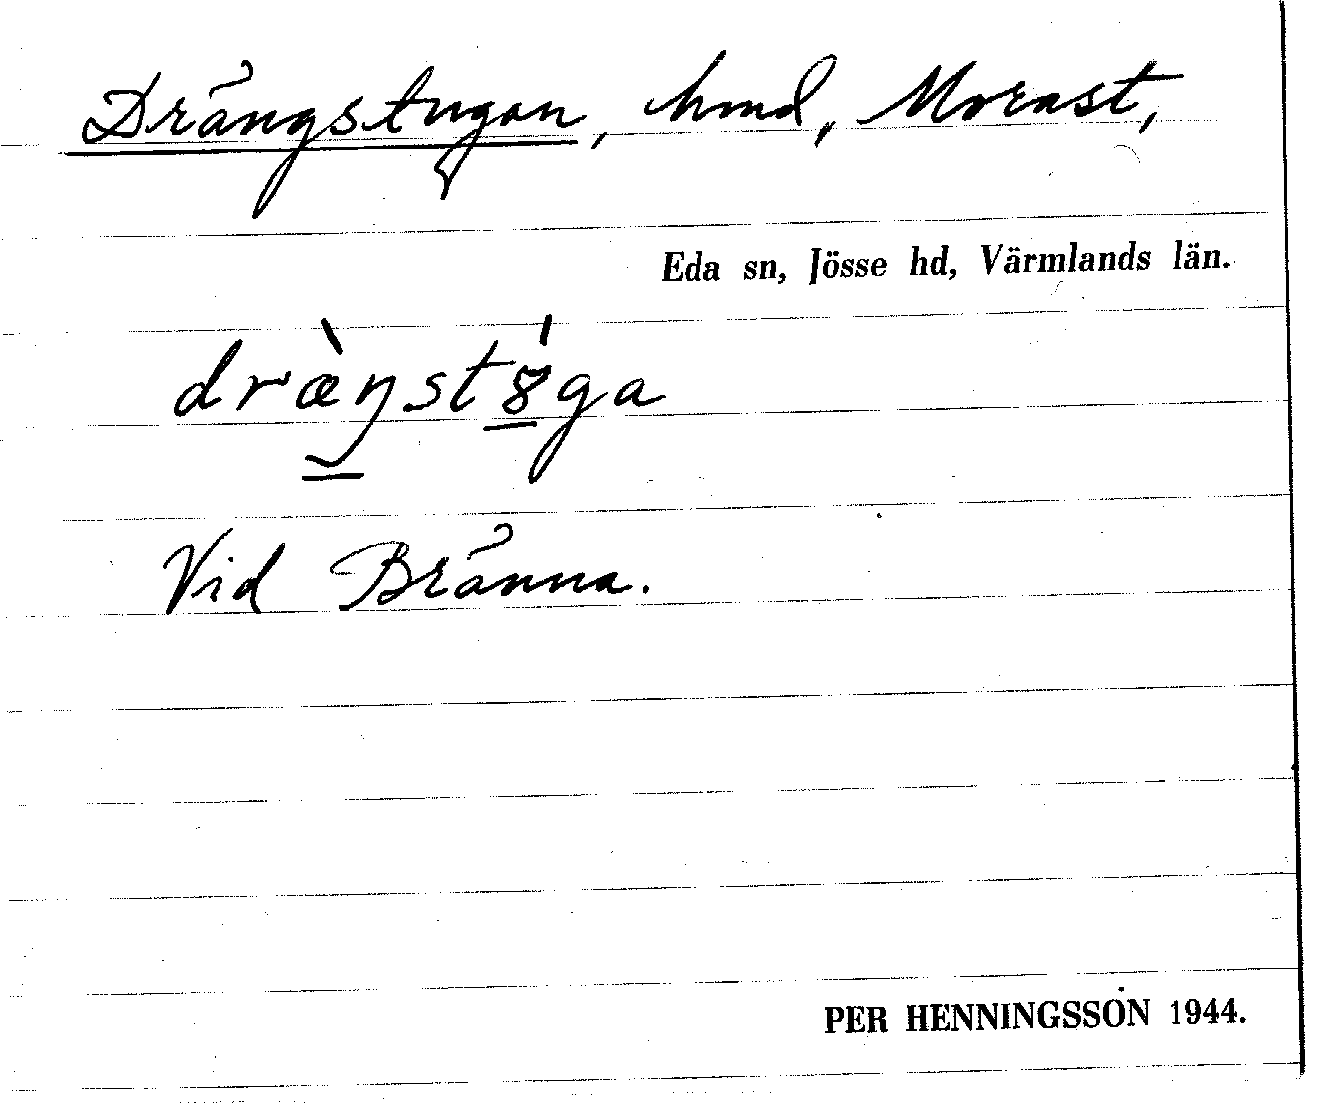 Drängstugan, hmd, Morast,
Eda sn, Jösse hd, Värmlands län.
dræ̀ŋst8́ga
Vid Bränna.
PER HENNINGSSON 1944.